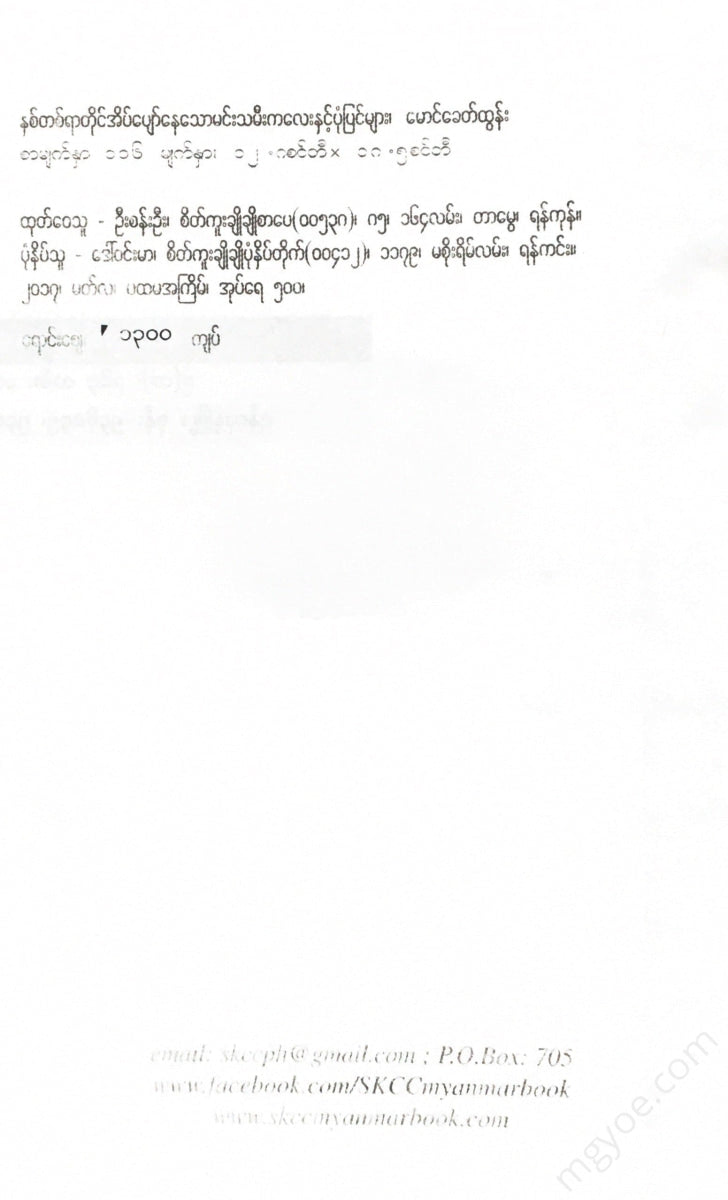 နှစ်တစ်ရာတိုင်အိပ်ပျော်နေသောမင်းသမီးကလေးနှင့်ပုံပြင်များ၊ မောင်ခေတ်ထွန်း
စာမျက်နှာ ၁၁၆ မျက်နှာ၊ ၁၂.၈စင်တီ× ၁၈.၅စင်တီ
ထုတ်ဝေသူ - ဦးစန်းဦး၊ စိတ်ကူးချိုချိုစာပေ(၀၀၅၃၈)၊ ၈၅၊ ၁၆၄လမ်း၊ တာမွေ၊ ရန်ကုန်။
ပုံနှိပ်သူ - ဒေါ်ဝင်းမာ၊ စိတ်ကူးချိုချိုပုံနှိပ်တိုက်(၀၀၄၁၂)၊ ၁၁၇၉၊ မစိုးရိမ်လမ်း၊ ရန်ကင်း။
၂၀၁၇၊ မတ်လ၊ ပထမအကြိမ်၊ အုပ်ရေ ၅၀၀၊
ရောင်းဈေး ၁၃၀၀ ကျပ်
email: skccph@gmail.com ; P.O.Box: 705
www.facebook.com/SKCCmyanmarbook
www.skccmyanmarbook.com
mgyoe.com